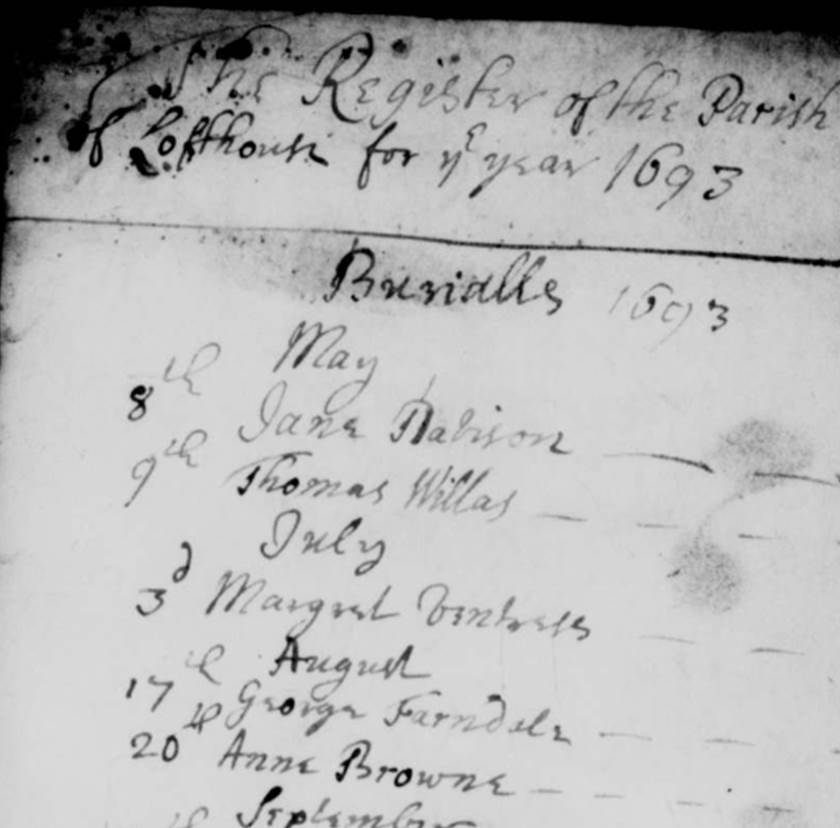 The Register of the Parish
of Lofthouse for yᵉ year 1693
Burialls 1693
May
8th Jane Habison
9th Thomas Willas
July
3d Margret Ventress
August
17th George Farndale
20th Anne Browne
September